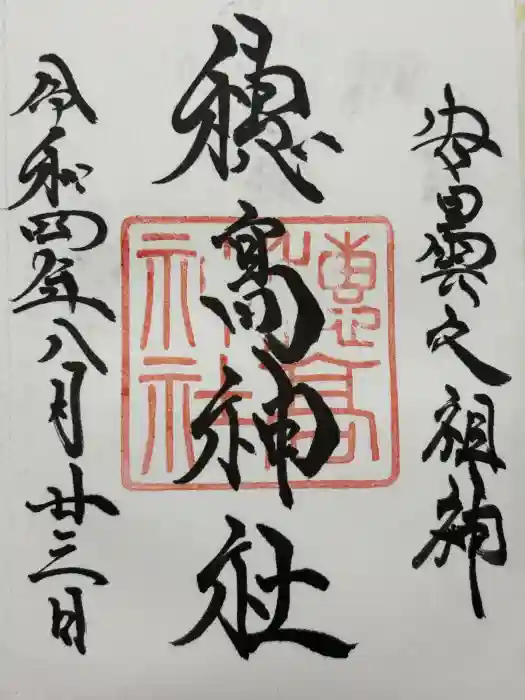 安曇之祖神
穂高神社
穂高神社
令和四年八月廿三日